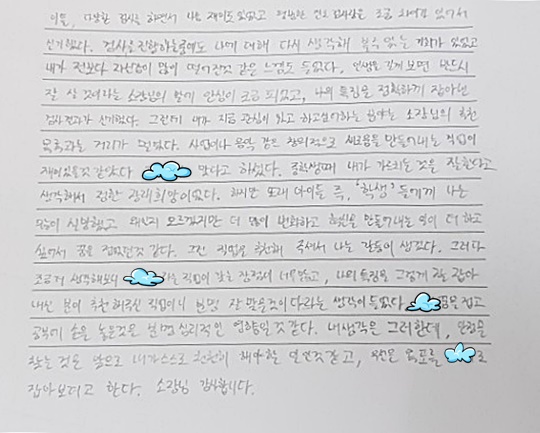 이틀, 다양한 검사를 하면서 나는 재미도 있었고 평소와는 조금 차이가 있어서
신기했다. 검사를 진행하는 중에도 나에 대해 다시 생각해 볼 수 있는 계기가 있었고
내가 전보다 자신감이 많이 떨어진 것 같은 느낌도 들었다. 인생을 길게 보면 반드시
잘 살 것이라는 소장님의 말에 안심이 조금 되었고, 나의 특징을 정확하게 잡아낸
검사결과가 신기했다. 그런데 내가 지금 관심이 있고 하고싶어하는 분야는 소장님의 추천
목록과는 거리가 멀었다. 사업이나 음악 같은 창의적으로 새로움을 만들어내는 직업이
재미있을것 같았다 맞다고 하셨다. 중학생때 내가 가르치는 것을 잘한다고
생각해서 정한 장래희망이었다. 하지만 또래 아이들 즉, '학생'들에게 나는
많이 실망했고 왠지 모르겠지만 더 많이 변화하고 혁신을 만들어내는 일이 더 하고
싶어서 꿈을 접었던것 같다. 그런 직업을 추천해 주셔서 나는 갈등이 생겼다. 그러다
조금 더 생각해보니 라는 직업이 갖는 장점이 너무 많고, 나의 특징을 그렇게 잘 잡아
내신 분이 추천해주신 직업이니 분명 잘 맞을것이다라는 생각이 들었다 꿈을 접고
공부에 손을 놓은것은 분명 심리적인 영향일것 같다. 내 생각은 그러한데, 안정을
찾는 것은 앞으로 내가 스스로 천천히 해야할 일인것 같고, 목표를 로
잡아보려고 한다. 소장님 감사합니다.